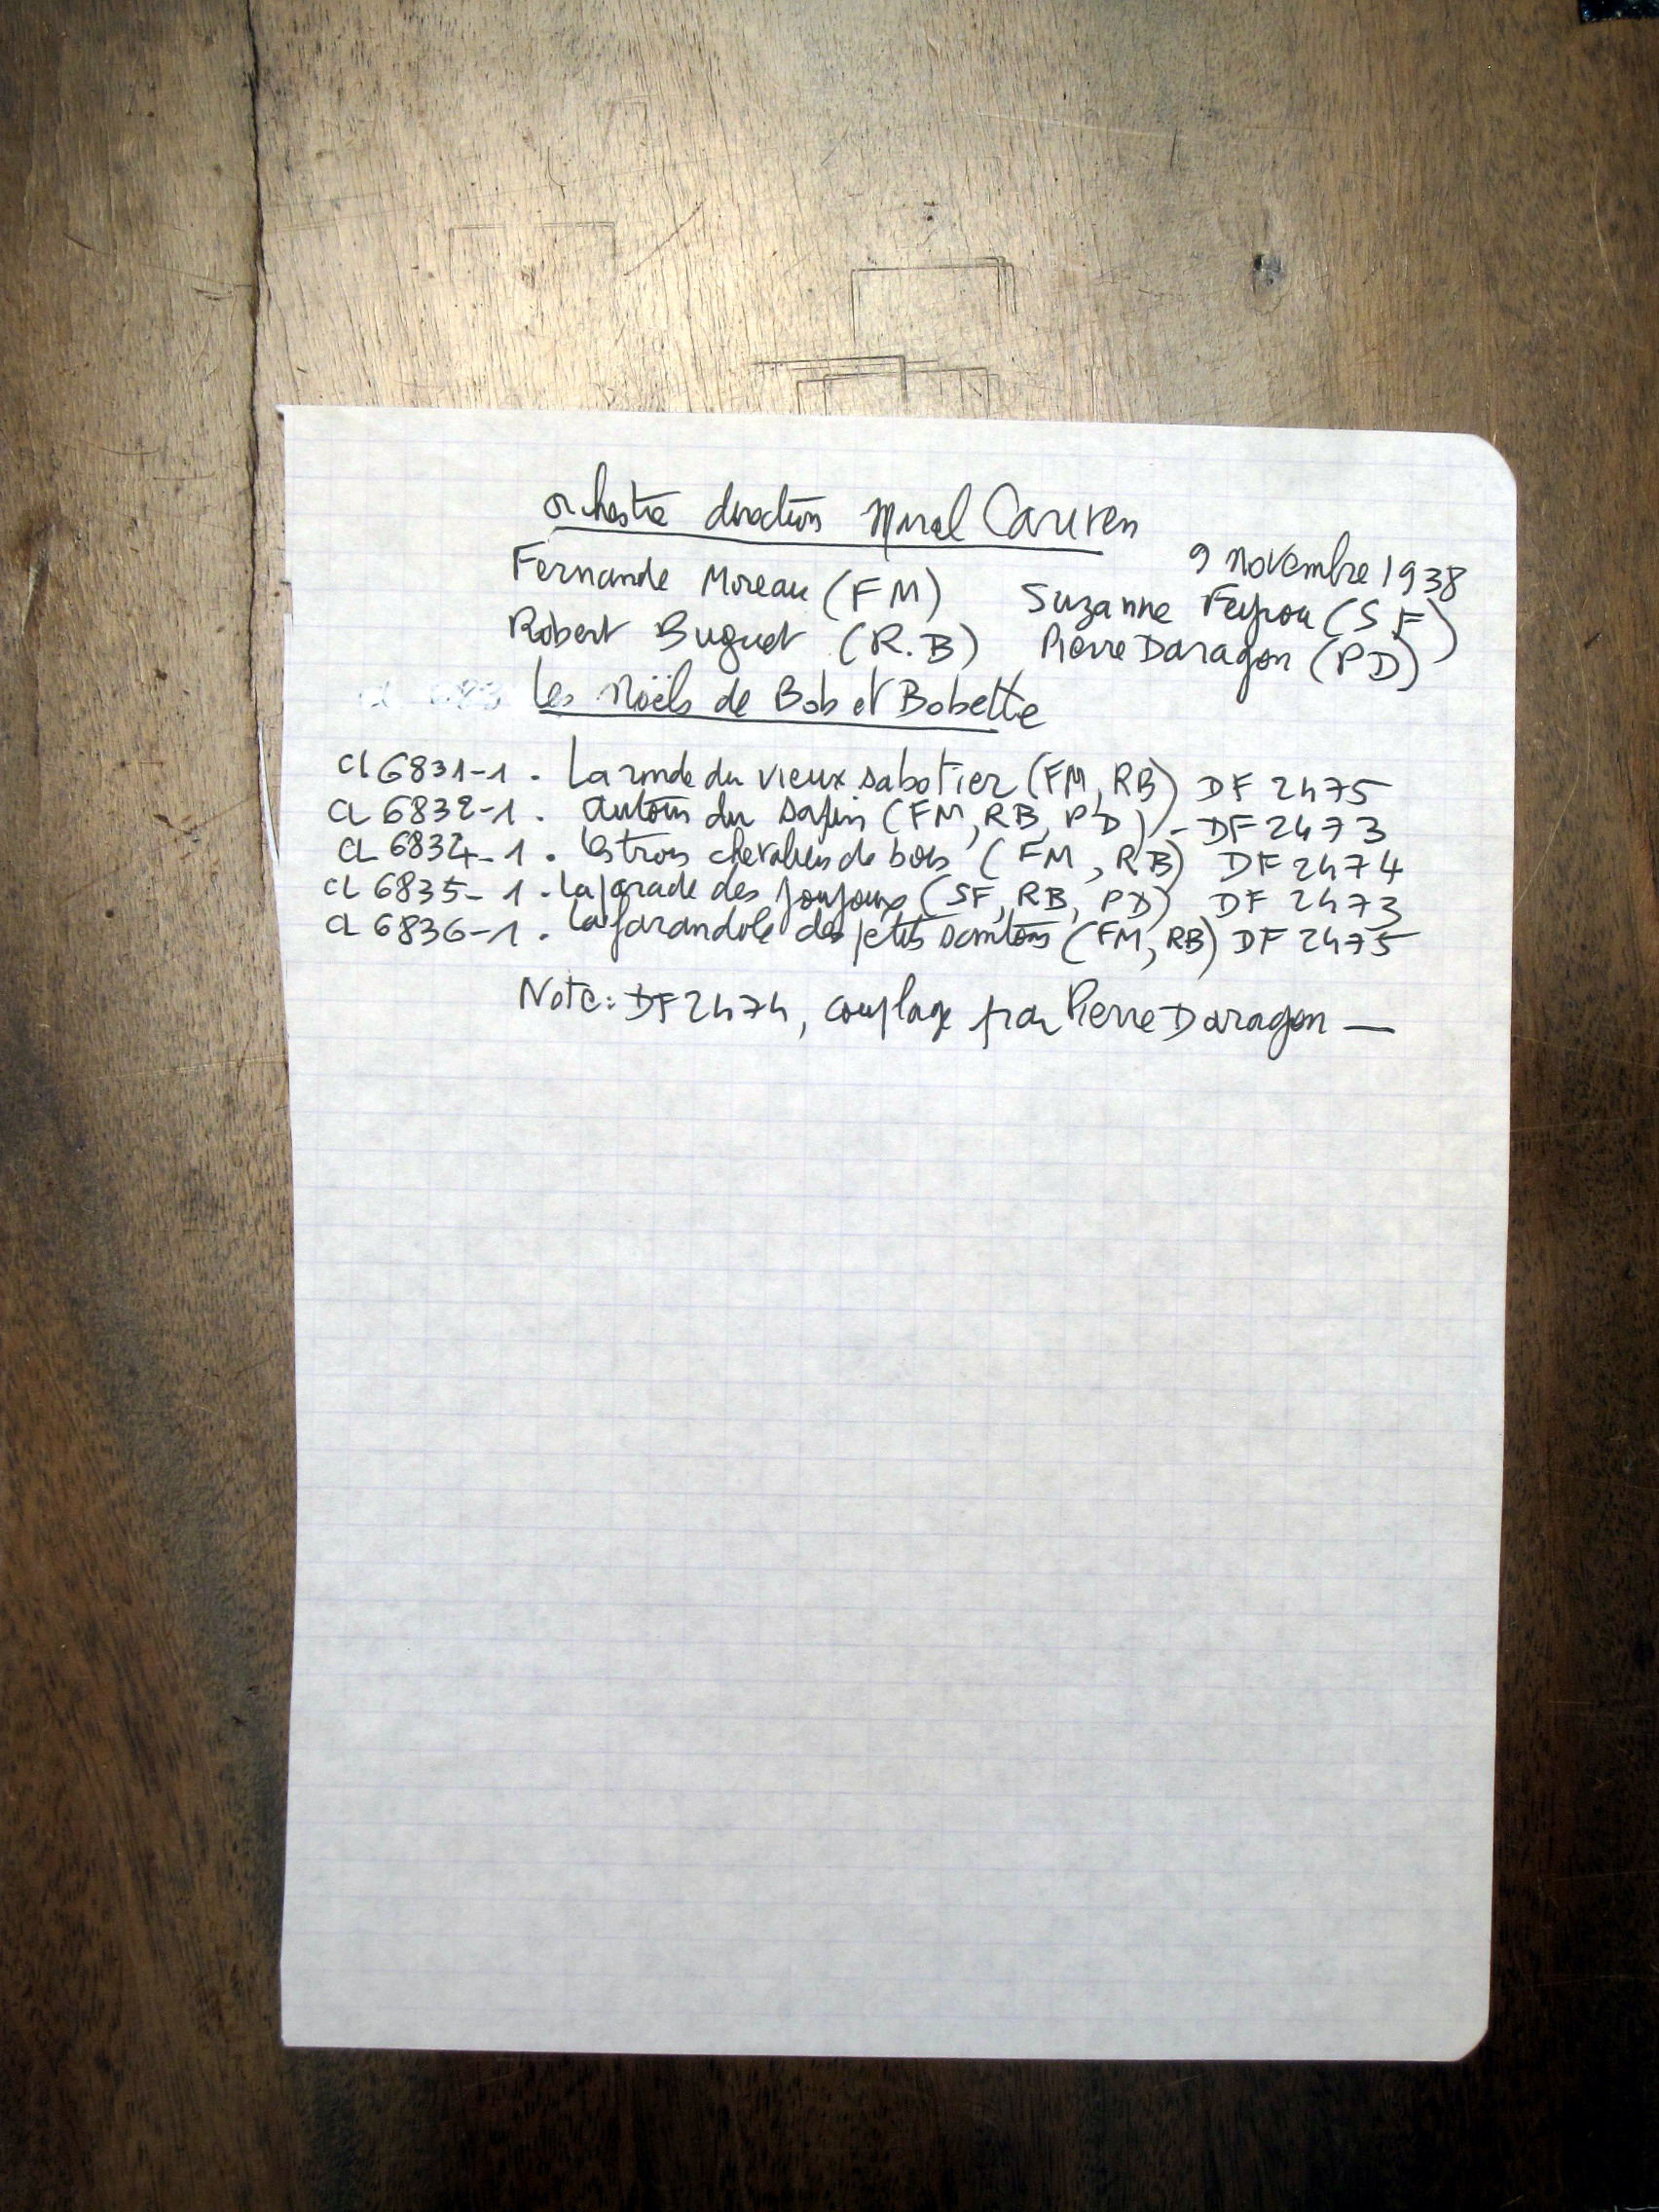 orchestre direction Marcel Cariven
9 novembre 1938
Fernande Moreau (FM) Suzanne Feyrou (SF)
Robert Buguet (R.B) Pierre Daragon (PD)
Les Noëls de Bob et Bobette
CL 6831-1. La ronde du vieux sabotier (FM, RB) DF 2475
CL 6832-1. autour du sapin (FM, RB, PD) - DF 2473
CL 6834-1. les trois chevaliers de bois (FM, RB) DF 2474
CL 6835-1. La parade des joujoux (SF, RB, PD) DF 2473
CL 6836-1. la farandole des petits santons (FM, RB) DF 2475
Note: DF 2474, couplage par Pierre Daragon —